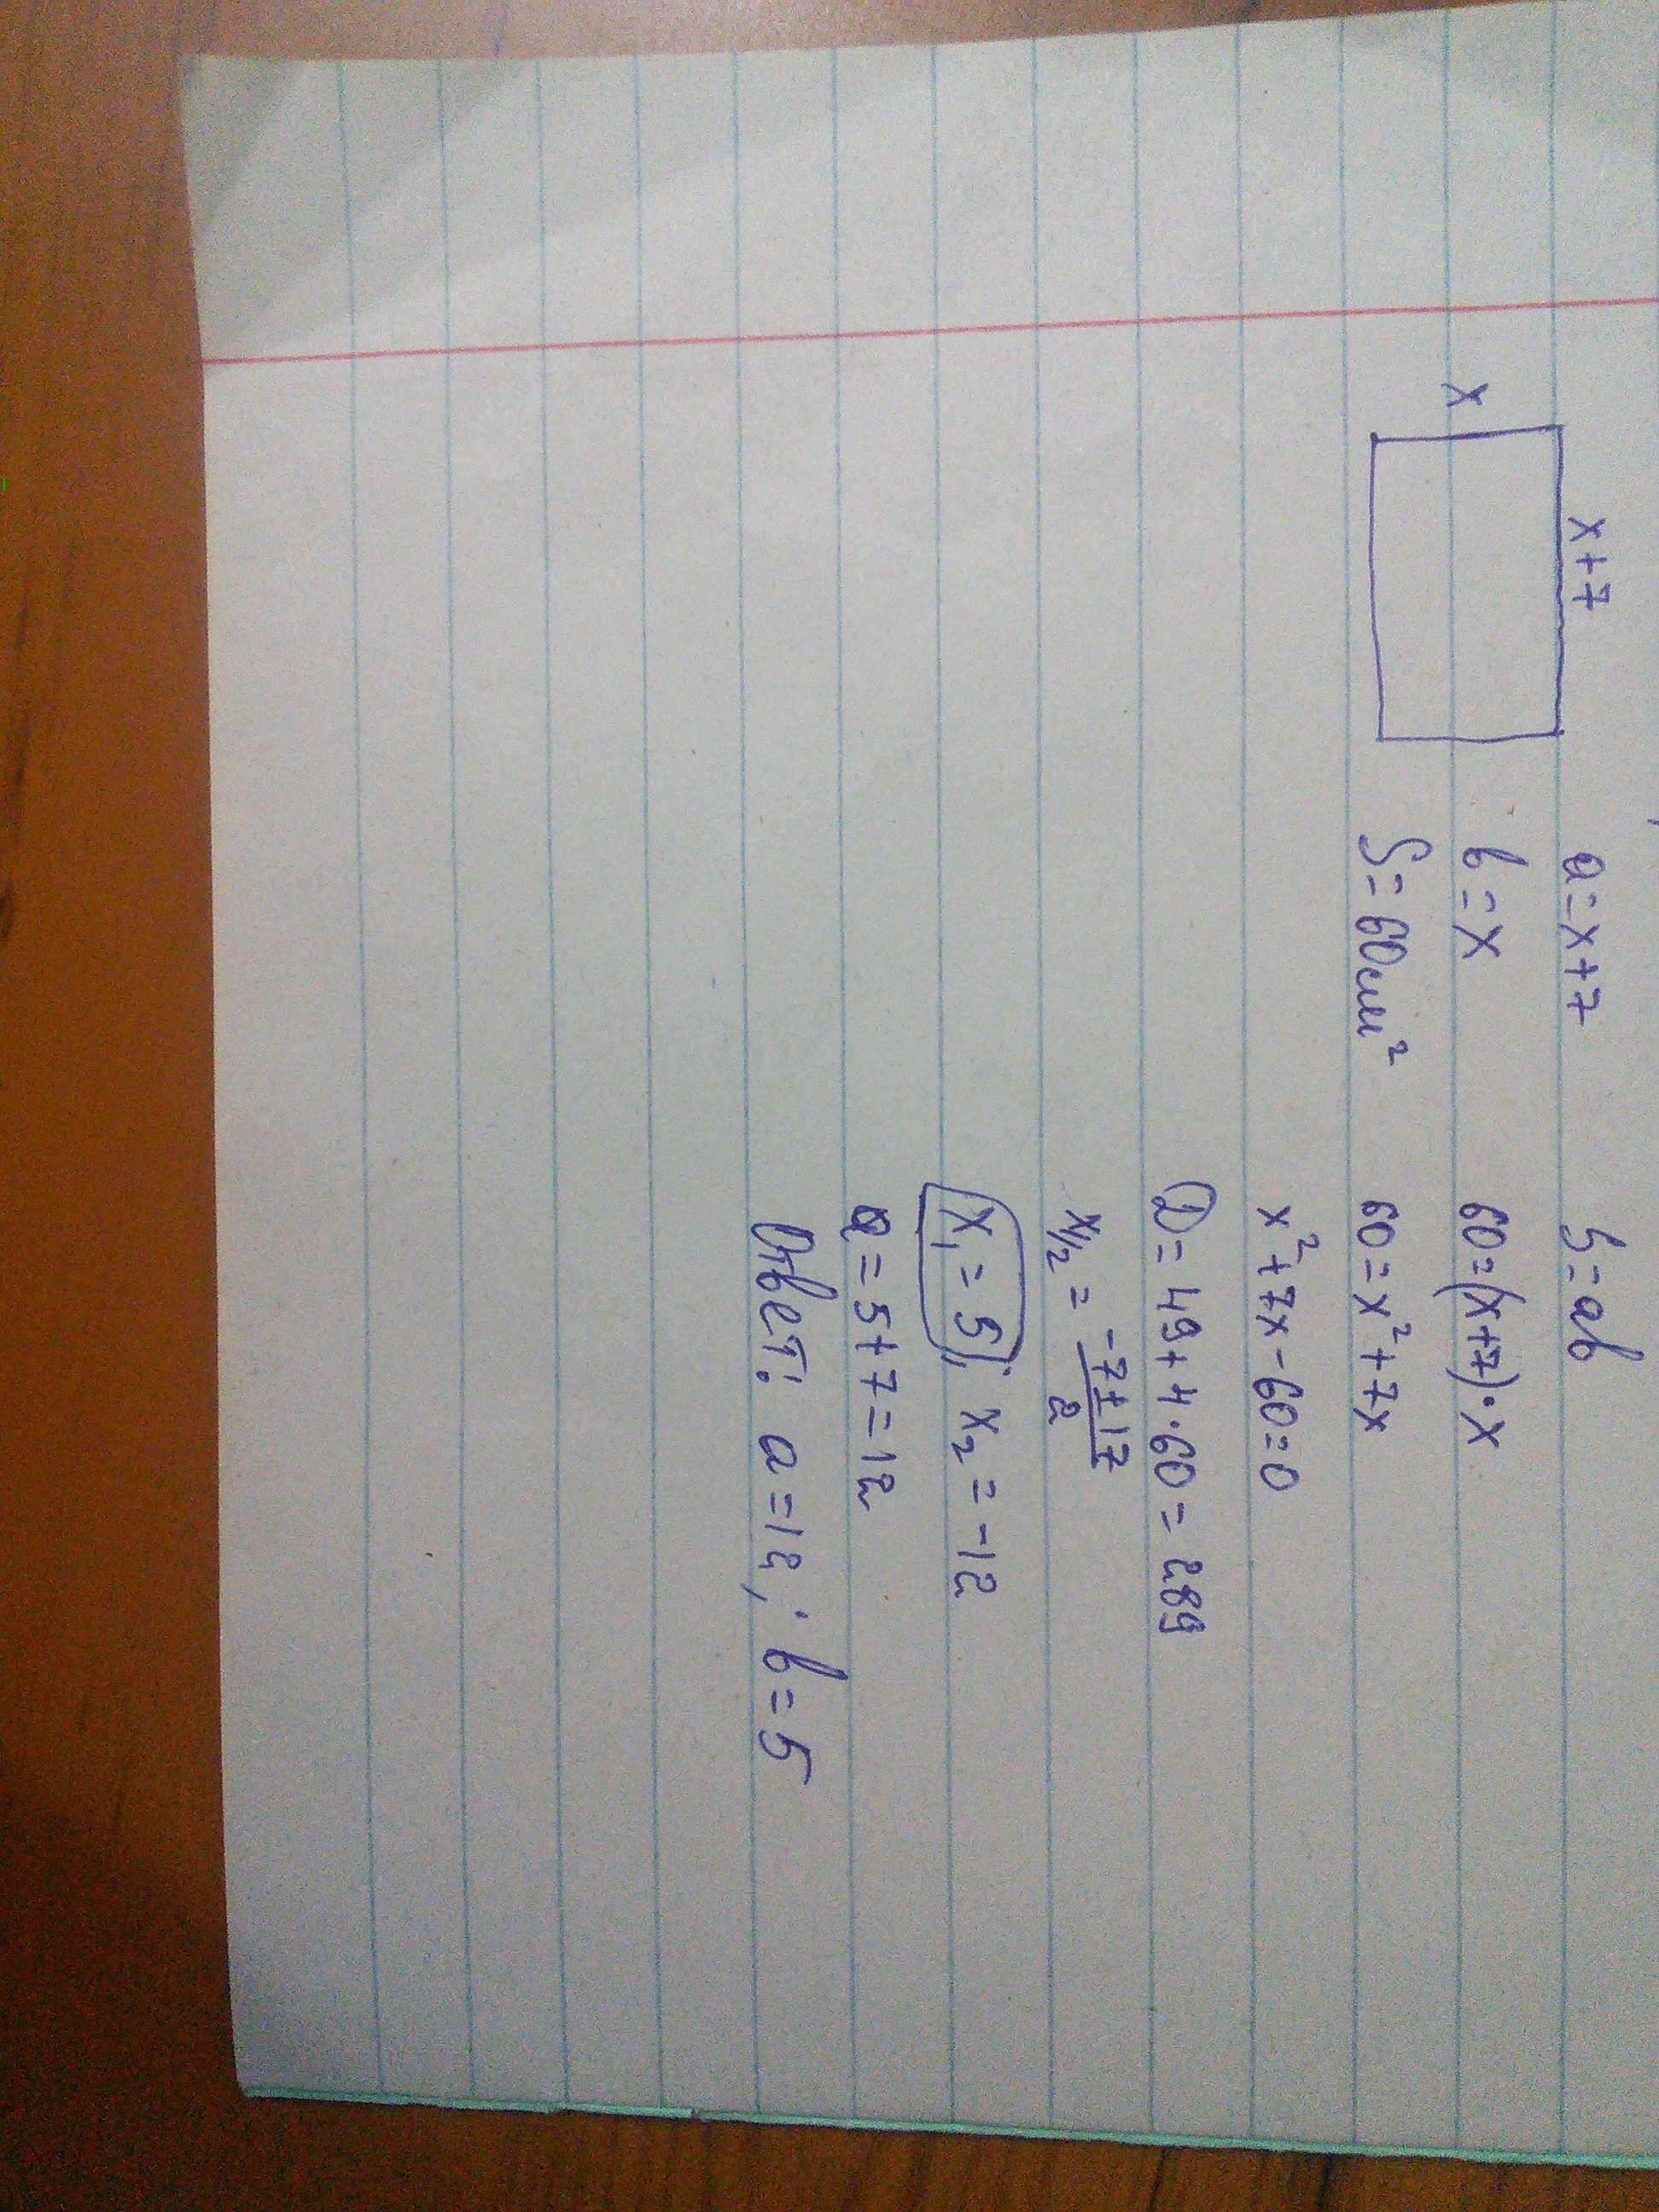 x+7
x
a=x+7
b=x
S=60см²
S=ab
60=(x+7)·x
60=x²+7x
x²+7x-60=0
D=49+4·60=289
x½=-7±17/2
x₁=5; x₂=-12
a=5+7=12
Ответ: a=12; b=5